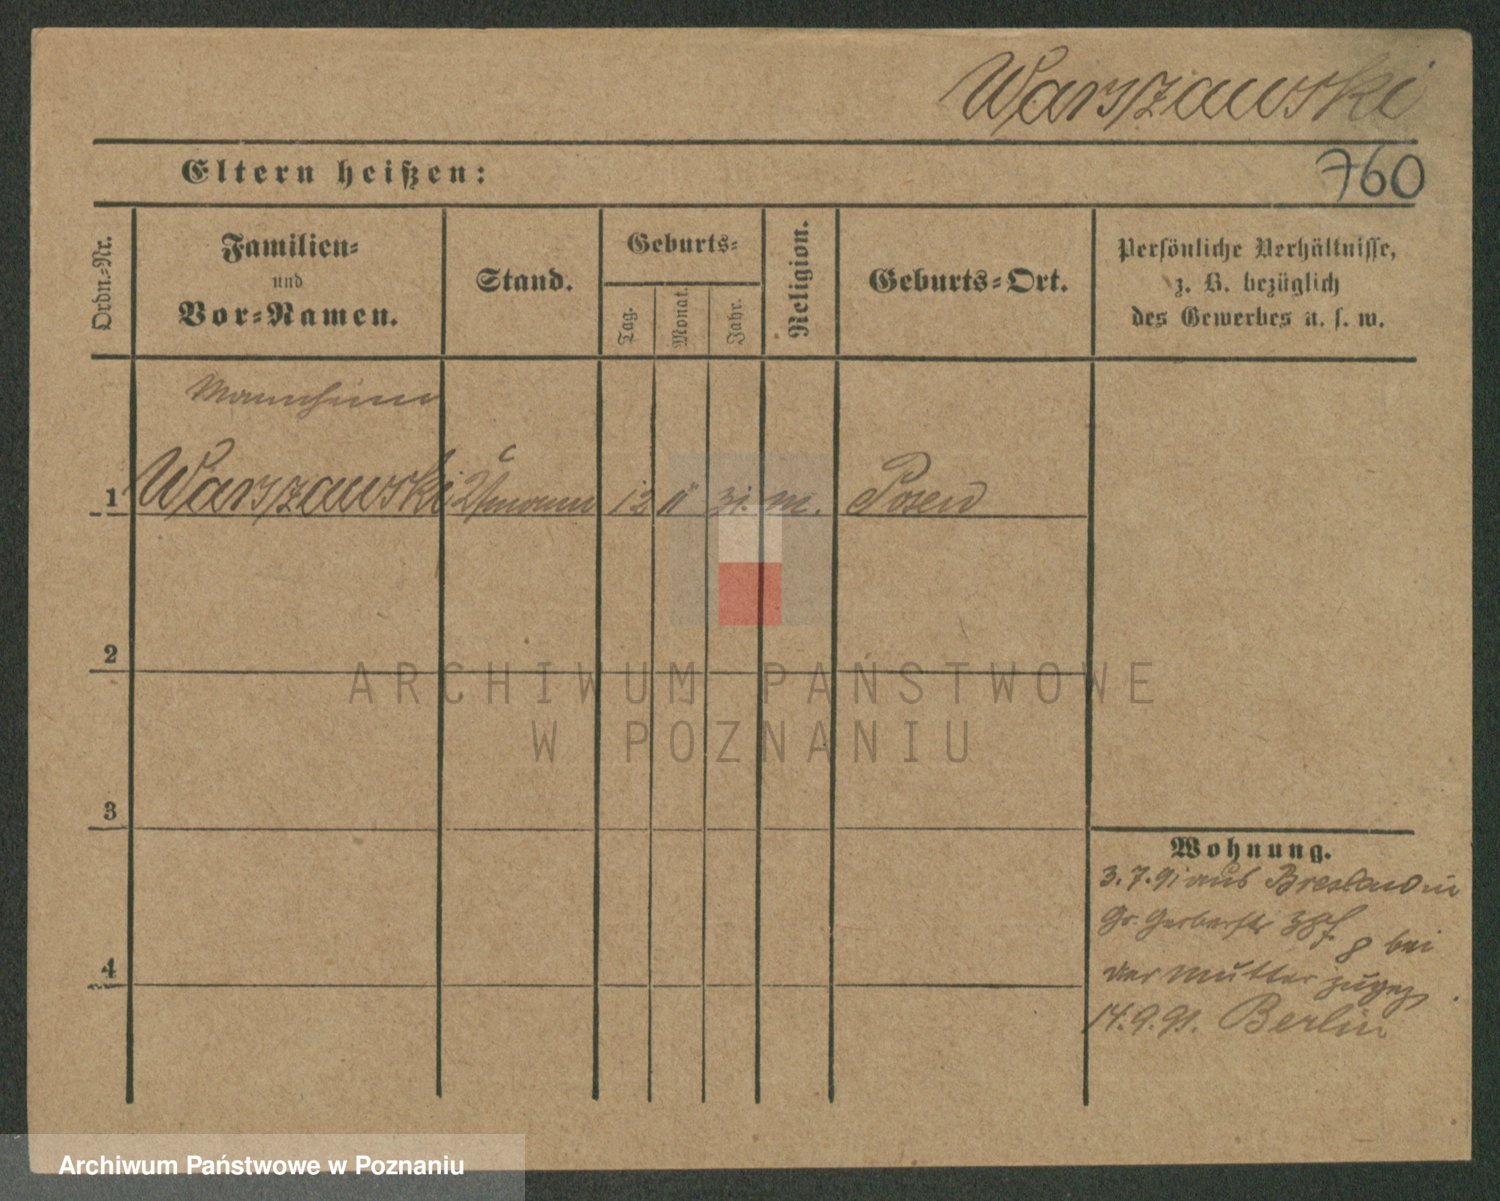 Warszawski
Eltern heißen:
760
Ordn.-Nr.
Familien-
und
Vor-Namen.
Stand.
Geburts-
Tag.
Monat.
Jahr.
Religion.
Geburts-Ort.
Persönliche Verhältnisse,
z. B. bezüglich
des Gewerbes u. s. w.
Mannheim
1 Warszawski Kfmann 13 11 31. m. Posen
2
ARCHIWUM PAŃSTWOWE
W POZNANIU
3
Wohnung.
3.7.91 aus Breslau in
Gr. Gerberstr 38 bei
der Mutter zugez.
4
14.9.91. Berlin
Archiwum Państwowe w Poznaniu